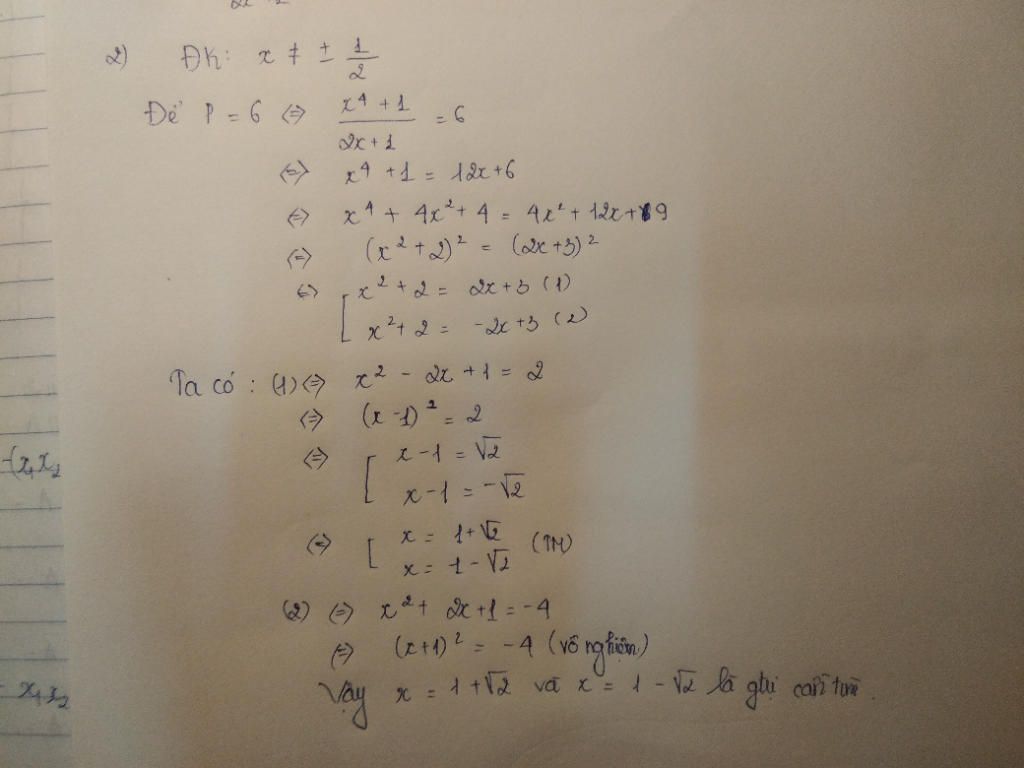 2) ĐK: x ≠ ± 1/2
Để P = 6 ⇔ (x⁴ + 1)/(2x + 1) = 6
⇔ x⁴ + 1 = 12x + 6
⇔ x⁴ + 4x² + 4 = 4x² + 12x + 9
⇔ (x² + 2)² = (2x + 3)²
⇔ [ x² + 2 = 2x + 3 (1)
x² + 2 = -2x + 3 (2)
Ta có : (1) ⇔ x² - 2x + 1 = 2
⇔ (x - 1)² = 2
⇔ [ x - 1 = √2
x - 1 = -√2
⇔ [ x = 1 + √2
x = 1 - √2 (TM)
(2) ⇔ x² + 2x + 1 = -4
⇔ (x + 1)² = -4 (vô nghiệm)
Vậy x = 1 + √2 và x = 1 - √2 là gtrị cần tìm.
-(x₁x₂
- x₁x₂